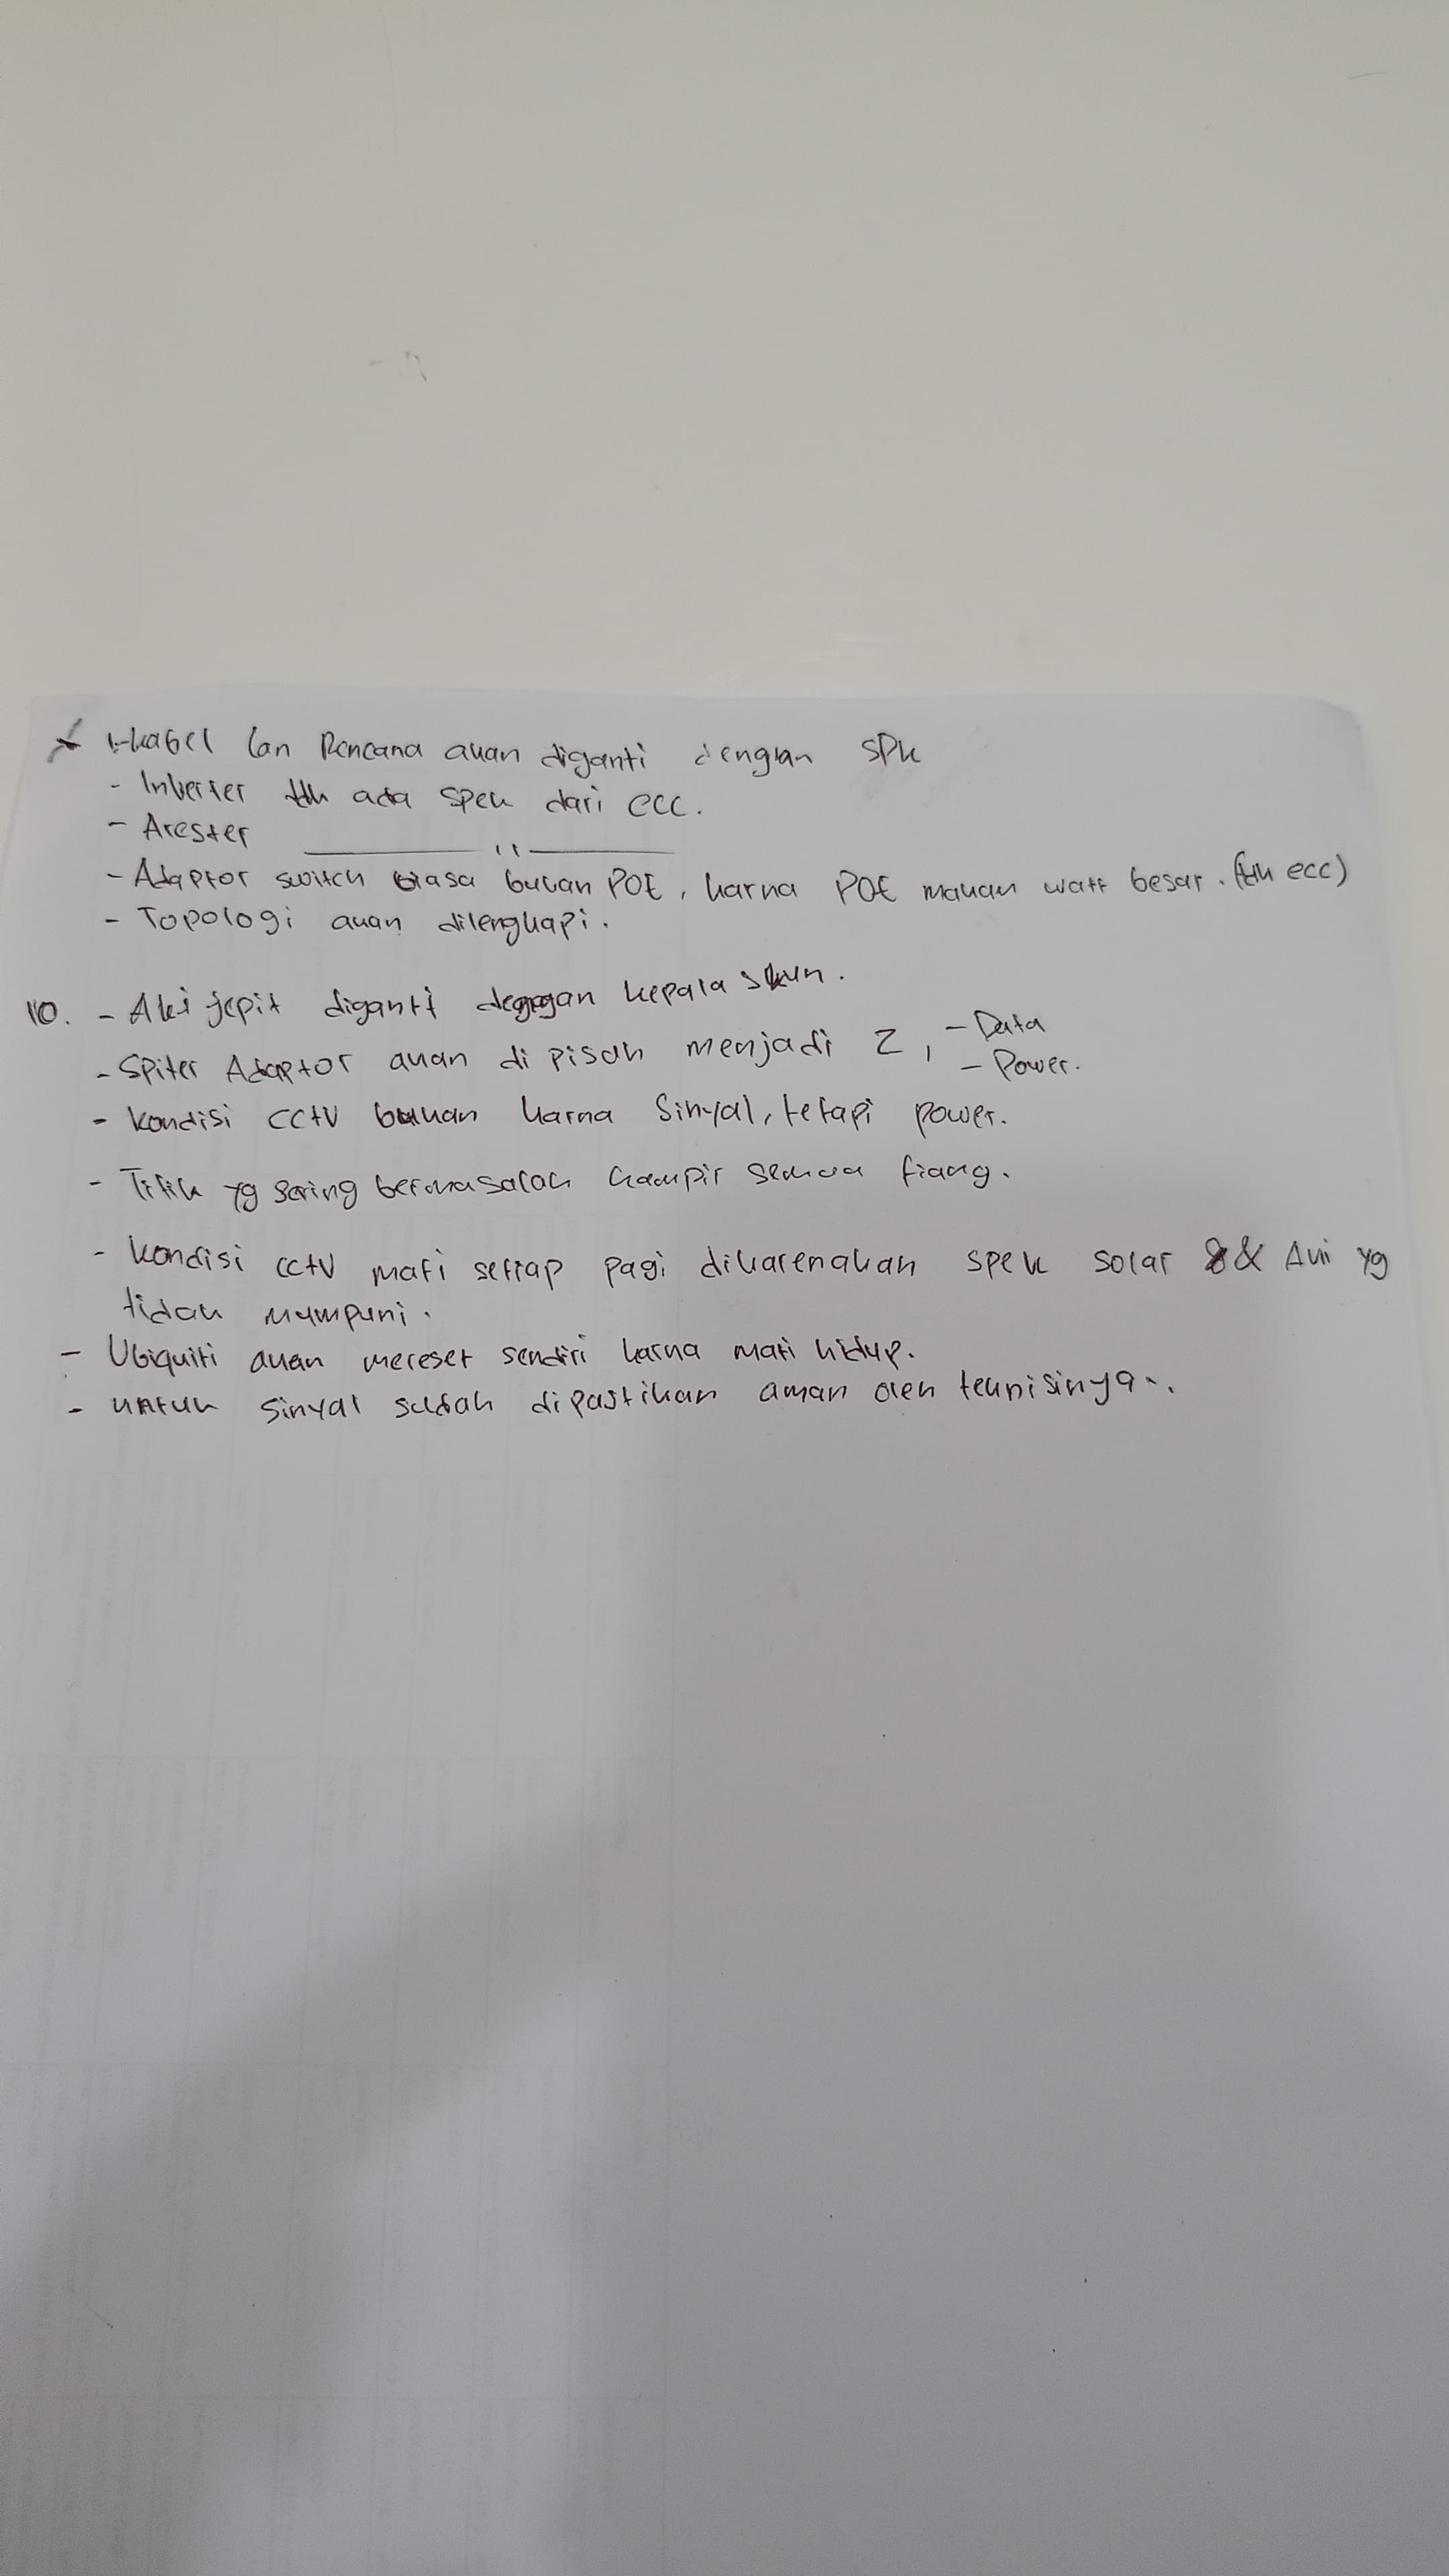 1.-kabel lan Rencana akan diganti dengan SPK
- Inverter tdk ada spek dari ecc.
- Arester ———— " ————
- Adaptor switch biasa bukan POE, karna POE makan watt besar. (tdk ecc)
- Topologi akan dilengkapi.
10. - Aki jepit diganti dengan kepala skun.
- Spiter Adaptor akan di pisah menjadi 2, - Data
- Power.
- kondisi CCTV bukan karna Sinyal, tetapi power.
- Titik yg sering bermasalah hampir semua tiang.
- kondisi cctv mati setiap pagi dikarenakan spek solar & Aki yg
tidak mumpuni.
- Ubiquiti akan mereset sendiri karna mati hidup.
- untuk sinyal sudah dipastikan aman oleh teknisinya.